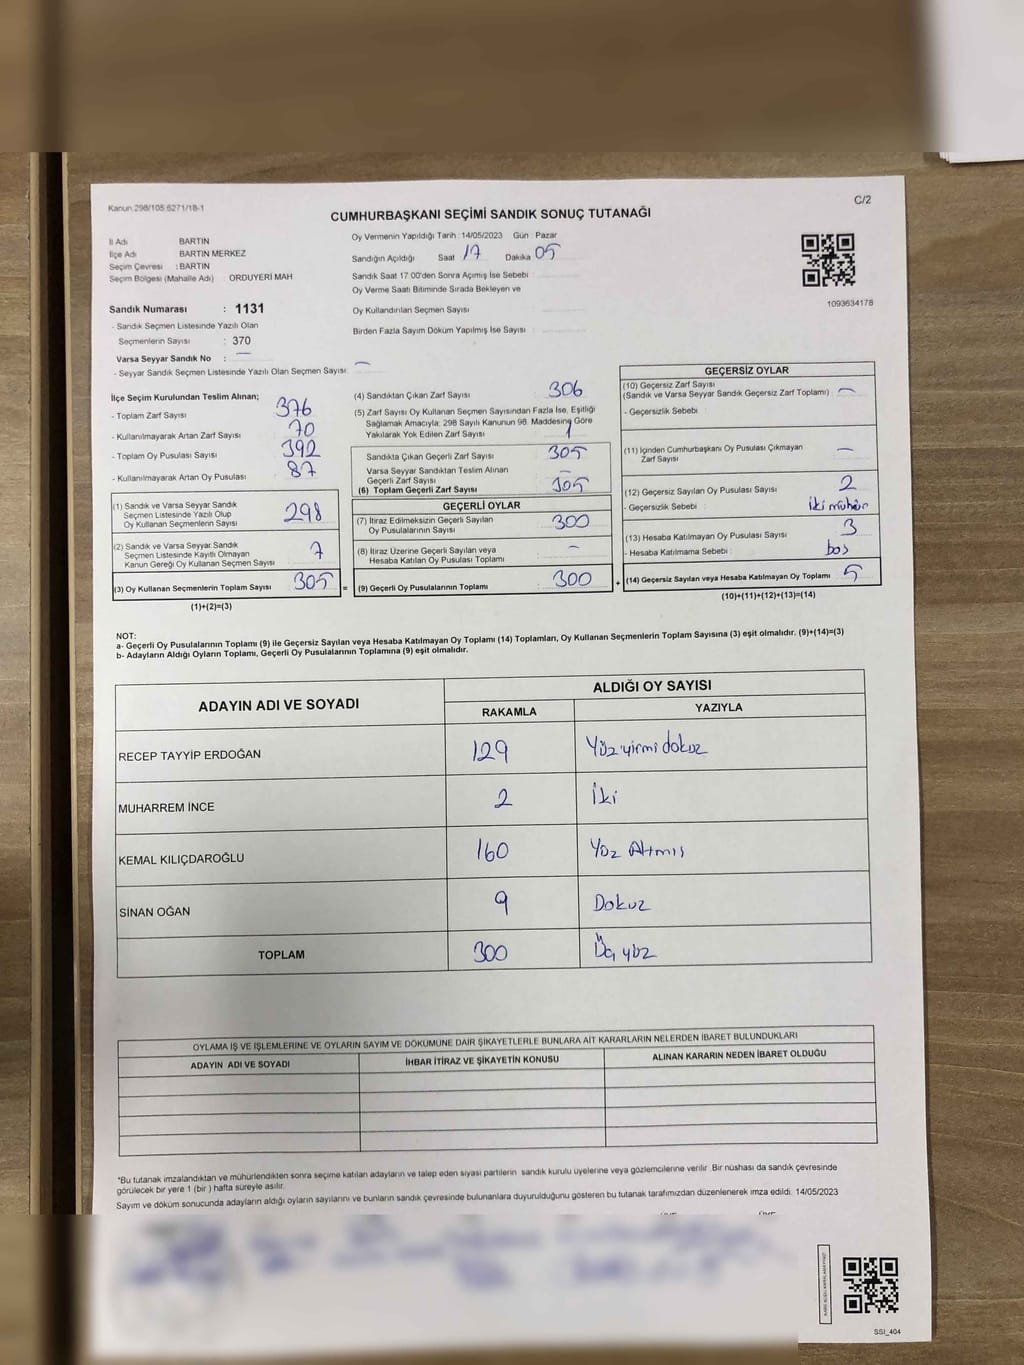 Kanun 298/105 6271/18-1
C/2
CUMHURBAŞKANI SEÇİMİ SANDIK SONUÇ TUTANAĞI
İl Adı BARTIN
İlçe Adı BARTIN MERKEZ
Seçim Çevresi : BARTIN
Seçim Bölgesi (Mahalle Adı) : ORDUYERİ MAH
Sandık Numarası : 1131
- Sandık Seçmen Listesinde Yazılı Olan
Seçmenlerin Sayısı : 370
Varsa Seyyar Sandık No : —
- Seyyar Sandık Seçmen Listesinde Yazılı Olan Seçmen Sayısı: —
Oy Vermenin Yapıldığı Tarih : 14/05/2023 Gün : Pazar
Sandığın Açıldığı Saat 17 Dakika 05
Sandık Saat 17:00'den Sonra Açımış İse Sebebi :
Oy Verme Saati Bitiminde Sırada Bekleyen ve
Oy Kullandırılan Seçmen Sayısı :
Birden Fazla Sayım Döküm Yapılmış İse Sayısı :
1093634178
İlçe Seçim Kurulundan Teslim Alınan;
- Toplam Zarf Sayısı 376
- Kullanılmayarak Artan Zarf Sayısı 70
- Toplam Oy Pusulası Sayısı 392
- Kullanılmayarak Artan Oy Pusulası : 87
(1) Sandık ve Varsa Seyyar Sandık
Seçmen Listesinde Yazılı Olup
Oy Kullanan Seçmenlerin Sayısı 298
(2) Sandık ve Varsa Seyyar Sandık
Seçmen Listesinde Kayıtlı Olmayan
Kanun Gereği Oy Kullanan Seçmen Sayısı 7
(3) Oy Kullanan Seçmenlerin Toplam Sayısı 305 =
(1)+(2)=(3)
(4) Sandıktan Çıkan Zarf Sayısı 306
(5) Zarf Sayısı Oy Kullanan Seçmen Sayısından Fazla İse, Eşitliği
Sağlamak Amacıyla; 298 Sayılı Kanunun 98. Maddesine Göre
Yakılarak Yok Edilen Zarf Sayısı 1
Sandıkta Çıkan Geçerli Zarf Sayısı 305
Varsa Seyyar Sandıktan Teslim Alınan
Geçerli Zarf Sayısı —
(6) Toplam Geçerli Zarf Sayısı 305
GEÇERLİ OYLAR
(7) İtiraz Edilmeksizin Geçerli Sayılan
Oy Pusulalarının Sayısı 300
(8) İtiraz Üzerine Geçerli Sayılan veya
Hesaba Katılan Oy Pusulası Toplamı —
(9) Geçerli Oy Pusulalarının Toplamı 300 +
GEÇERSİZ OYLAR
(10) Geçersiz Zarf Sayısı
(Sandık ve Varsa Seyyar Sandık Geçersiz Zarf Toplamı) —
- Geçersizlik Sebebi :
(11) İçinden Cumhurbaşkanı Oy Pusulası Çıkmayan
Zarf Sayısı —
(12) Geçersiz Sayılan Oy Pusulası Sayısı 2
- Geçersizlik Sebebi iki mühür
(13) Hesaba Katılmayan Oy Pusulası Sayısı 3
- Hesaba Katılmama Sebebi boş
(14) Geçersiz Sayılan veya Hesaba Katılmayan Oy Toplamı 5
(10)+(11)+(12)+(13)=(14)
NOT:
a- Geçerli Oy Pusulalarının Toplamı (9) ile Geçersiz Sayılan veya Hesaba Katılmayan Oy Toplamı (14) Toplamları, Oy Kullanan Seçmenlerin Toplam Sayısına (3) eşit olmalıdır. (9)+(14)=(3)
b- Adayların Aldığı Oyların Toplamı, Geçerli Oy Pusulalarının Toplamına (9) eşit olmalıdır.
ADAYIN ADI VE SOYADI
ALDIĞI OY SAYISI
RAKAMLA YAZIYLA
RECEP TAYYİP ERDOĞAN 129 Yüz yirmi dokuz
MUHARREM İNCE 2 İki
KEMAL KILIÇDAROĞLU 160 Yüz Altmış
SİNAN OĞAN 9 Dokuz
TOPLAM 300 Üç yüz
OYLAMA İŞ VE İŞLEMLERİNE VE OYLARIN SAYIM VE DÖKÜMÜNE DAİR ŞİKAYETLERLE BUNLARA AİT KARARLARIN NELERDEN İBARET BULUNDUKLARI
ADAYIN ADI VE SOYADI İHBAR İTİRAZ VE ŞİKAYETİN KONUSU ALINAN KARARIN NEDEN İBARET OLDUĞU
*Bu tutanak imzalandıktan ve mühürlendikten sonra seçime katılan adayların ve talep eden siyasi partilerin sandık kurulu üyelerine veya gözlemcilerine verilir. Bir nüshası da sandık çevresinde
görülecek bir yere 1 (bir) hafta süreyle asılır.
Sayım ve döküm sonucunda adayların aldığı oyların sayılarını ve bunların sandık çevresinde bulunanlara duyurulduğunu gösteren bu tutanak tarafımızdan düzenlenerek imza edildi. 14/05/2023
SSI_404